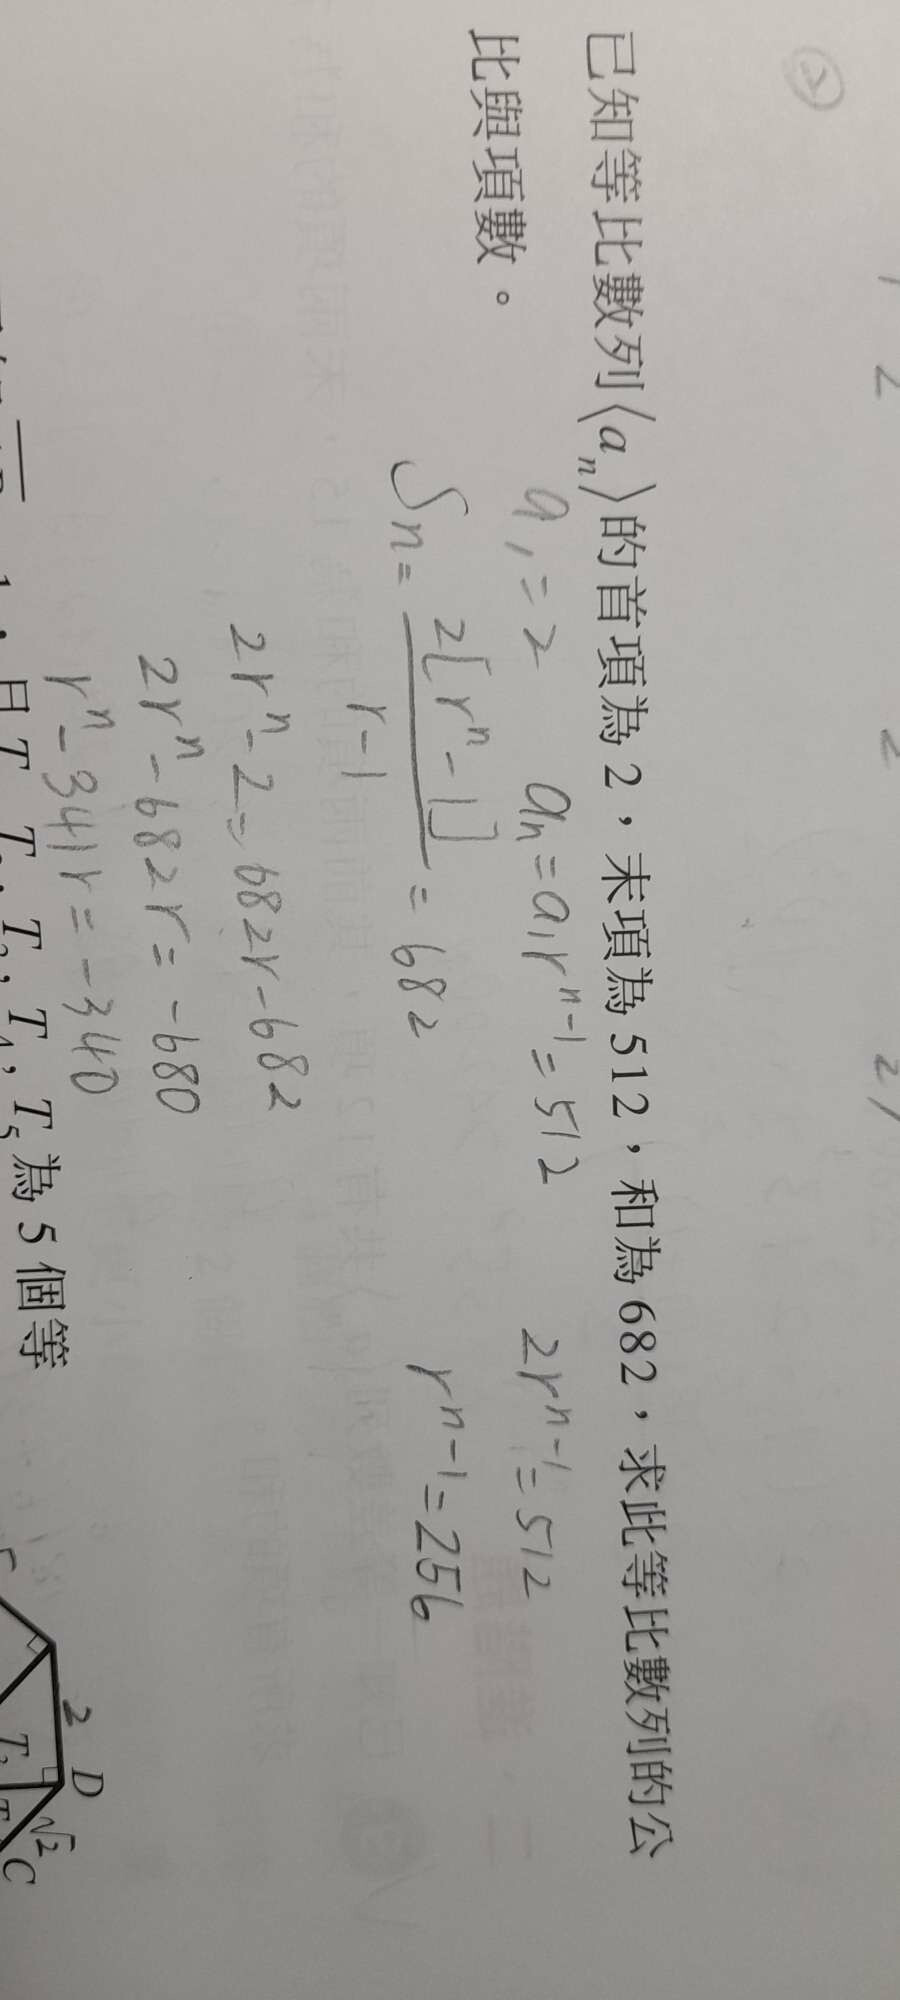 ②
已知等比數列⟨aₙ⟩的首項為 2，末項為 512，和為 682，求此等比數列的公
比與項數。
a₁=2 aₙ=a₁rⁿ⁻¹=512 2rⁿ⁻¹=512
Sₙ=2[rⁿ-1]/r-1=682 rⁿ⁻¹=256
2rⁿ-2=682r-682
2rⁿ-682r=-680
rⁿ-341r=-340
T₃，T₄，T₅ 為 5 個等
2
D
√2
C